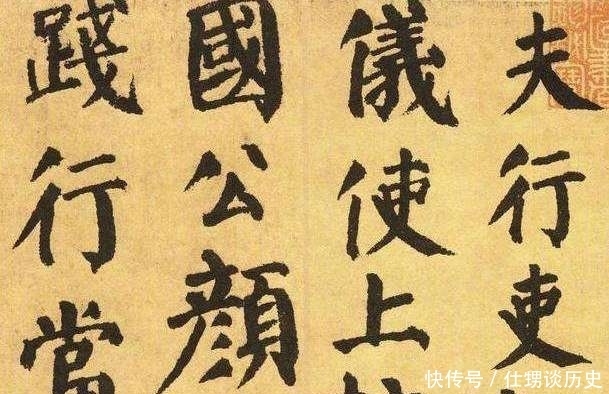 夫行吏
儀使上
國公顏
踐行當
快传号 / 仕甥谈历史